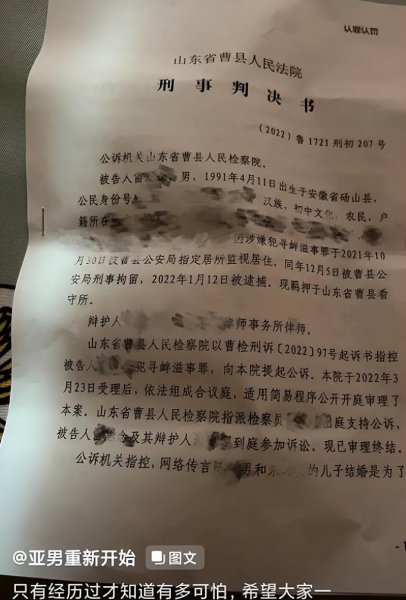 认罪认罚
山东省曹县人民法院
刑事判决书
（2022）鲁 1721 刑初 207 号
公诉机关山东省曹县人民检察院。
被告人留 男，1991年4月11日出生于安徽省砀山县，
公民身份号 汉族，初中文化，农民，户
籍所在
因涉嫌犯寻衅滋事罪于2021年10
月30日被曹县公安局指定居所监视居住，同年12月5日被曹县公
安局刑事拘留，2022年1月12日被逮捕。现羁押于山东省曹县看
守所。
辩护人 律师事务所律师。
山东省曹县人民检察院以曹检刑诉〔2022〕97号起诉书指控
被告人 犯寻衅滋事罪，向本院提起公诉。本院于2022年3
月23日受理后，依法组成合议庭，适用简易程序公开开庭审理了
本案。山东省曹县人民检察院指派检察员 出庭支持公诉，
被告人留 及其辩护人 到庭参加诉讼。现已审理终结。
公诉机关指控，网络传言 男和 的儿子结婚是为了
@亚男重新开始 图文
只有经历过才知道有多可怕，希望大家一